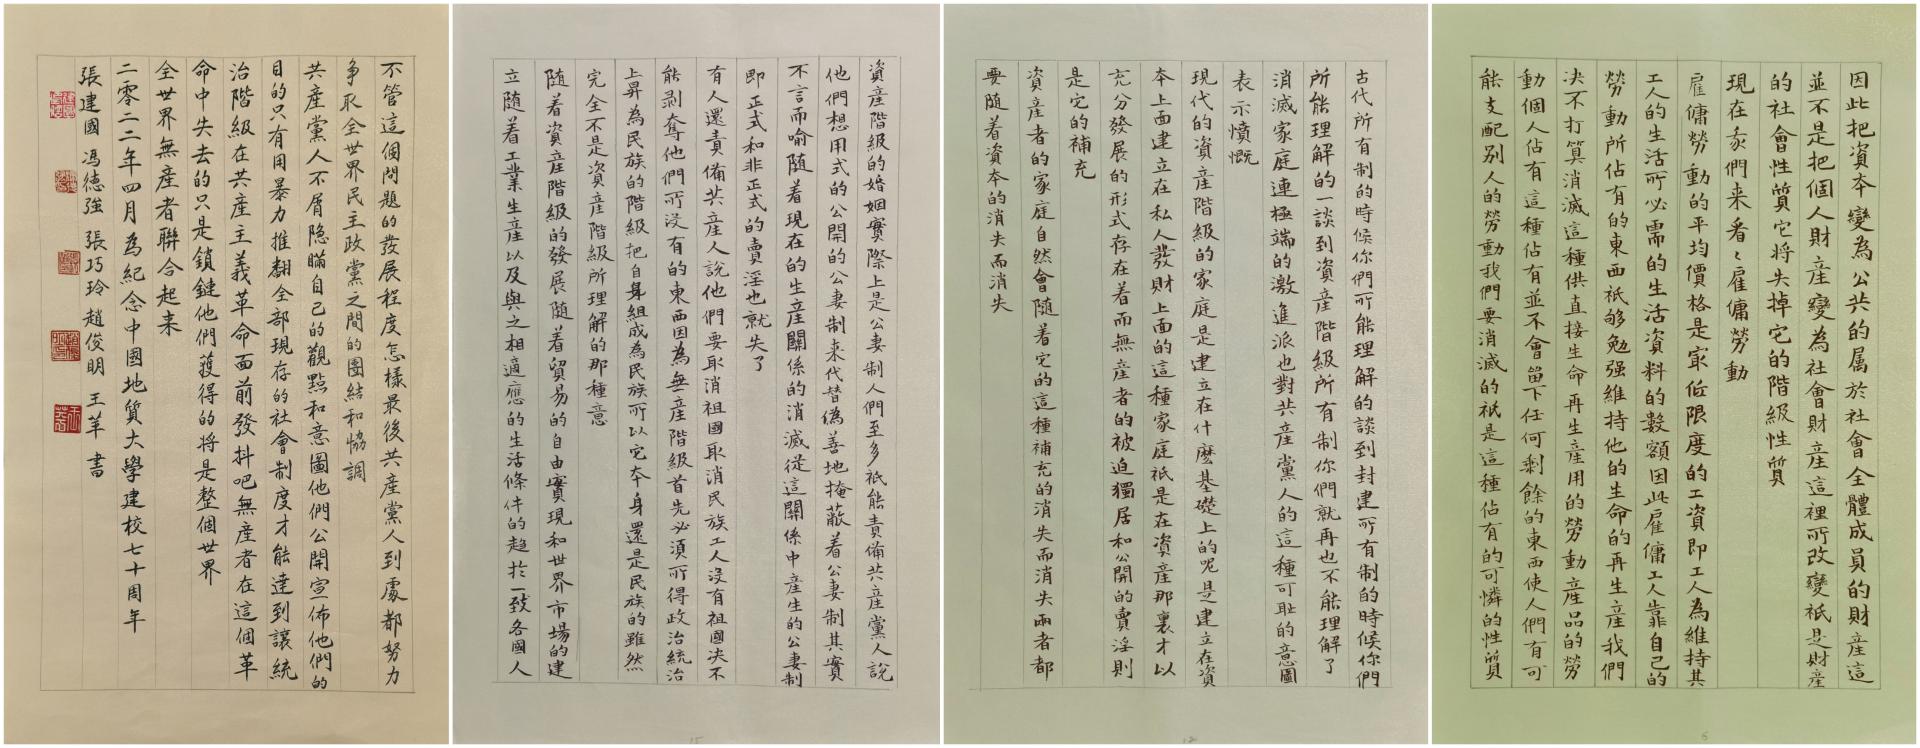 因此把資本變為公共的属於社會全體成員的財產這
並不是把個人財產變為社會財產這裡所改變祇是財產
的社會性質它将失掉它的階級性質
現在我們来看看雇傭勞動
雇傭勞動的平均價格是最低限度的工資即工人為維持其
工人的生活所必需的生活資料的數額因此雇傭工人靠自己的
勞動所佔有的東西祇够勉强維持他的生命的再生產我們
决不打算消滅這種供直接生命再生產用的勞動產品的勞
動個人佔有這種佔有並不會留下任何剩餘的東西使人們有可
能支配别人的勞動我們要消滅的祇是這種佔有的可憐的性質
6
古代所有制的時候你們所能理解的談到封建所有制的時候你們
所能理解的一談到資產階級所有制你們就再也不能理解了
消滅家庭連極端的激進派也對共產黨人的這種可恥的意圖
表示憤慨
現代的資產階級的家庭是建立在什麼基礎上的呢是建立在資
本上面建立在私人發財上面的這種家庭祇是在資產那裏才以
充分發展的形式存在着而無產者的被迫獨居和公開的賣淫則
是它的補充
資產者的家庭自然會隨着它的這種補充的消失而消失兩者都
要隨着資本的消失而消失
12
資產階級的婚姻實際上是公妻制人們至多祇能責備共產黨人說
他們想用式的公開的公妻制来代替偽善地掩蔽着公妻制其實
不言而喻隨着現在的生產關係的消滅從這關係中產生的公妻制
即正式和非正式的賣淫也就失了
有人還責備共產人說他們要取消祖國取消民族工人沒有祖國决不
能剥奪他們所没有的東西因為無產階級首先必須所得政治統治
上昇為民族的階級把自身組成為民族所以它本身還是民族的雖然
完全不是資產階級所理解的那種意
隨着資產階級的發展隨着貿易的自由實現和世界市場的建
立隨着工業生產以及與之相適應的生活條件的趋於一致各國人
15
不管這個問題的發展程度怎樣最後共產黨人到處都努力
争取全世界民主政黨之間的團結和協調
共產黨人不屑隐瞞自己的觀點和意圖他們公開宣佈他們的
目的只有用暴力推翻全部現存的社會制度才能達到讓統
治階級在共產主義革命面前發抖吧無產者在這個革
命中失去的只是鎖鏈他們獲得的将是整個世界
全世界無產者聯合起来
二零二二年四月為紀念中國地質大學建校七十周年
張建國 馮德強 張巧玲 趙俊明 王苹 書